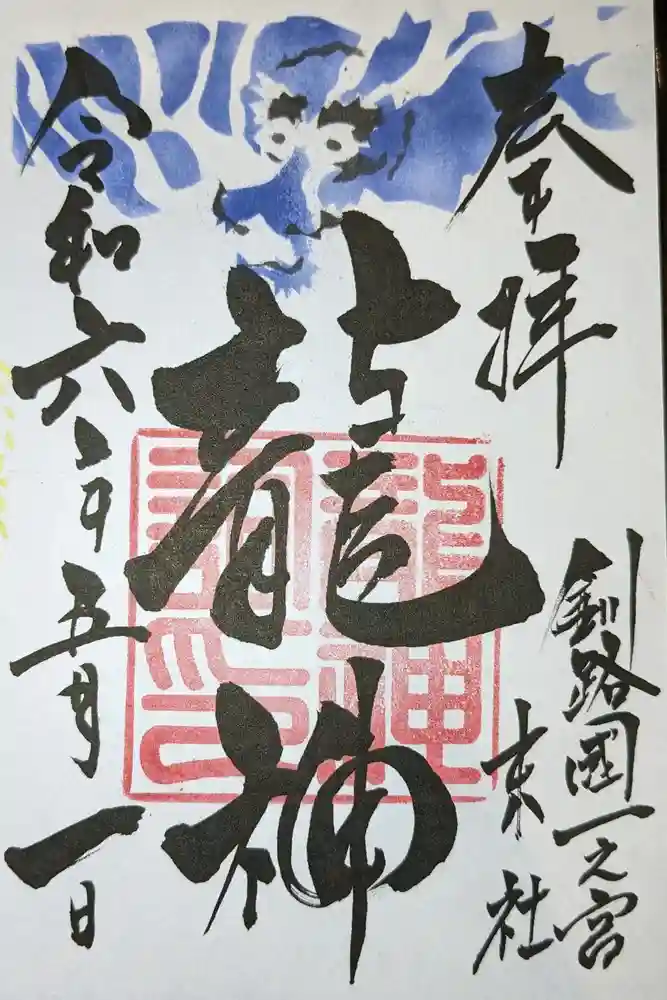 奉拝
釧路國一之宮
末社
龍神
龍神
令和六年五月一日